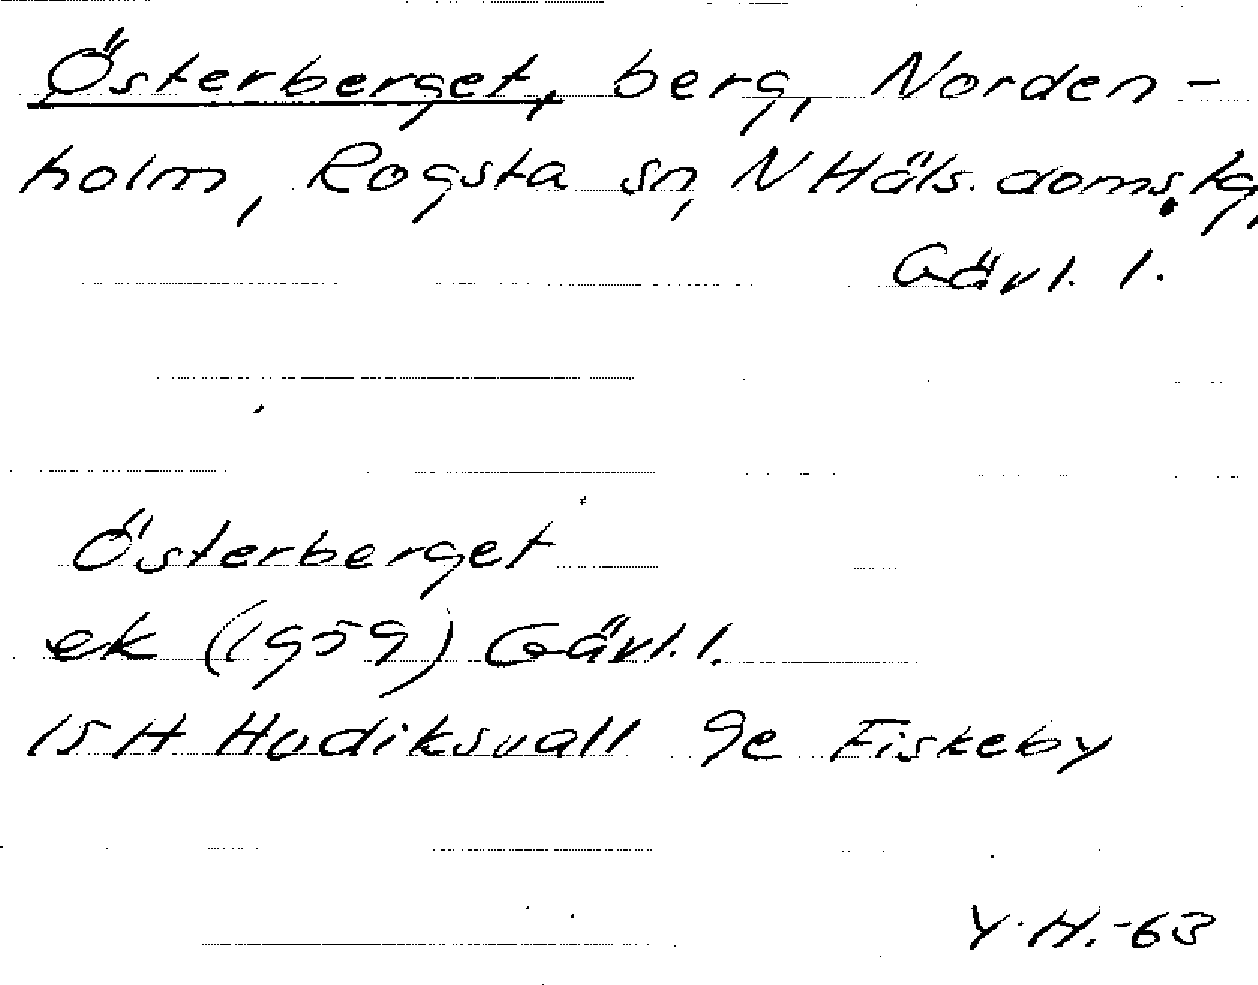 Österberget, berg, Norden-
holm, Rogsta sn, N Häls. doms.tg,
Gävl. l.
Österberget
ek (1959) Gävl. l.
15H Hudiksvall 9e Fiskeby
Y.H.-63